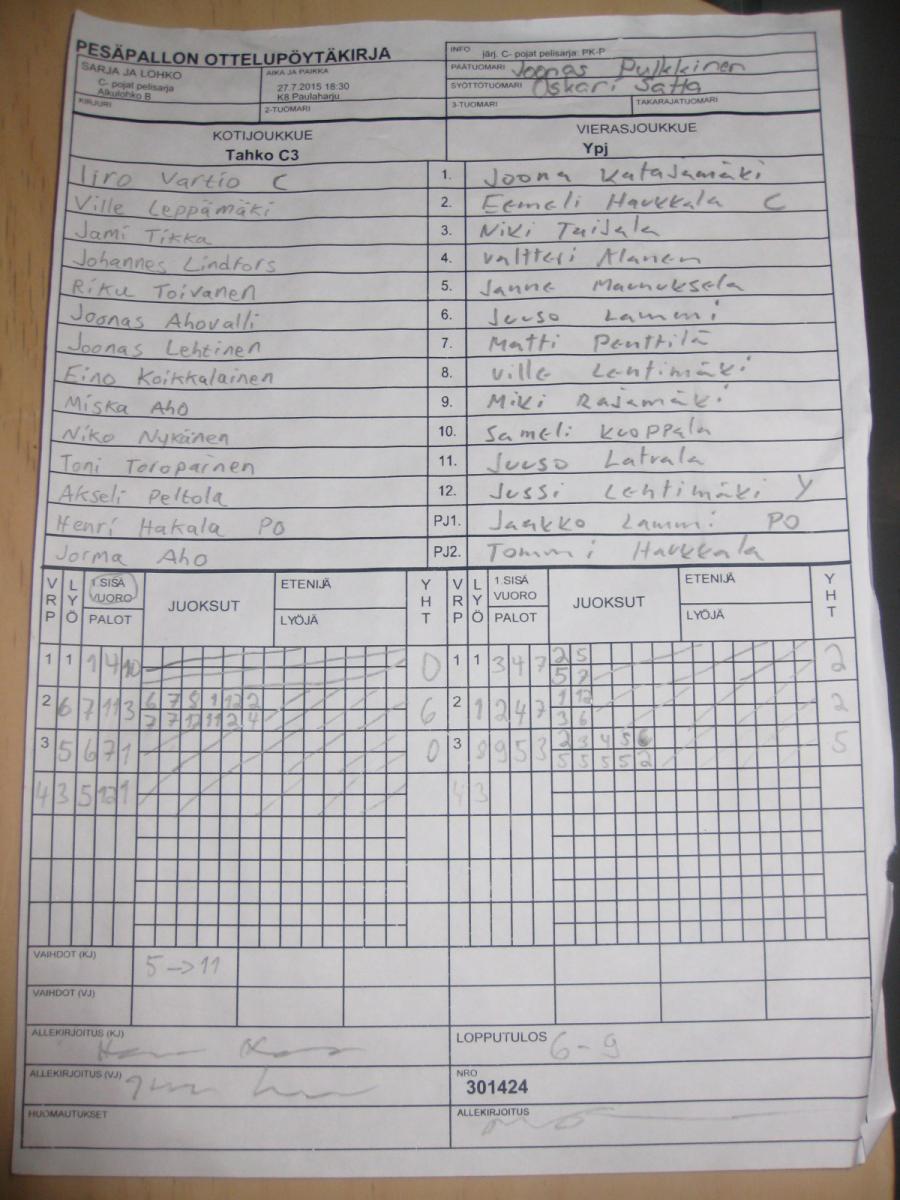 PESÄPALLON OTTELUPÖYTÄKIRJA
SARJA JA LOHKO
C- pojat pelisarja
Alkulohko B
AIKA JA PAIKKA
27.7.2015 18:30
K8 Paulaharju
KIRJURI
2-TUOMARI
INFO järj. C- pojat pelisarja: PK-P
PÄÄTUOMARI Joonas Pulkkinen
SYÖTTÖTUOMARI Oskari Satta
3-TUOMARI TAKARAJATUOMARI
KOTIJOUKKUE VIERASJOUKKUE
Tahko C3 Ypj
Iiro Vartio C 1. Joona Katajamäki
Ville Leppämäki 2. Eemeli Haukkala C
Jami Tikka 3. Niki Taijala
Johannes Lindfors 4. Valtteri Alanen
Riku Toivanen 5. Janne Maunuksela
Joonas Ahovalli 6. Juuso Lammi
Joonas Lehtinen 7. Matti Penttilä
Eino Koikkalainen 8. Ville Lehtimäki
Miska Aho 9. Miki Rajamäki
Niko Nykänen 10. Sameli Kuoppala
Toni Toropainen 11. Juuso Latvala
Akseli Peltola 12. Jussi Lehtimäki Y
Henri Hakala PO PJ1. Jaakko Lammi PO
Jorma Aho PJ2. Tommi Haukkala
VRP LYÖ 1.SISÄ VUORO PALOT JUOKSUT ETENIJÄ LYÖJÄ YHT VRP LYÖ 1.SISÄ VUORO PALOT JUOKSUT ETENIJÄ LYÖJÄ YHT
1 1 1 4 10 0 1 1 3 4 7 2 5 2
5 7
2 6 7 11 3 6 7 8 1 12 2 6 2 1 2 4 7 1 12 2
7 7 12 11 2 4 3 6
3 5 6 7 1 0 3 8 9 5 3 2 3 4 5 6 5
5 5 5 5 2
4 3 5 12 1 4 3
VAIHDOT (KJ) 5->11
VAIHDOT (VJ)
ALLEKIRJOITUS (KJ) LOPPUTULOS 6-9
ALLEKIRJOITUS (VJ) NRO
301424
HUOMAUTUKSET ALLEKIRJOITUS